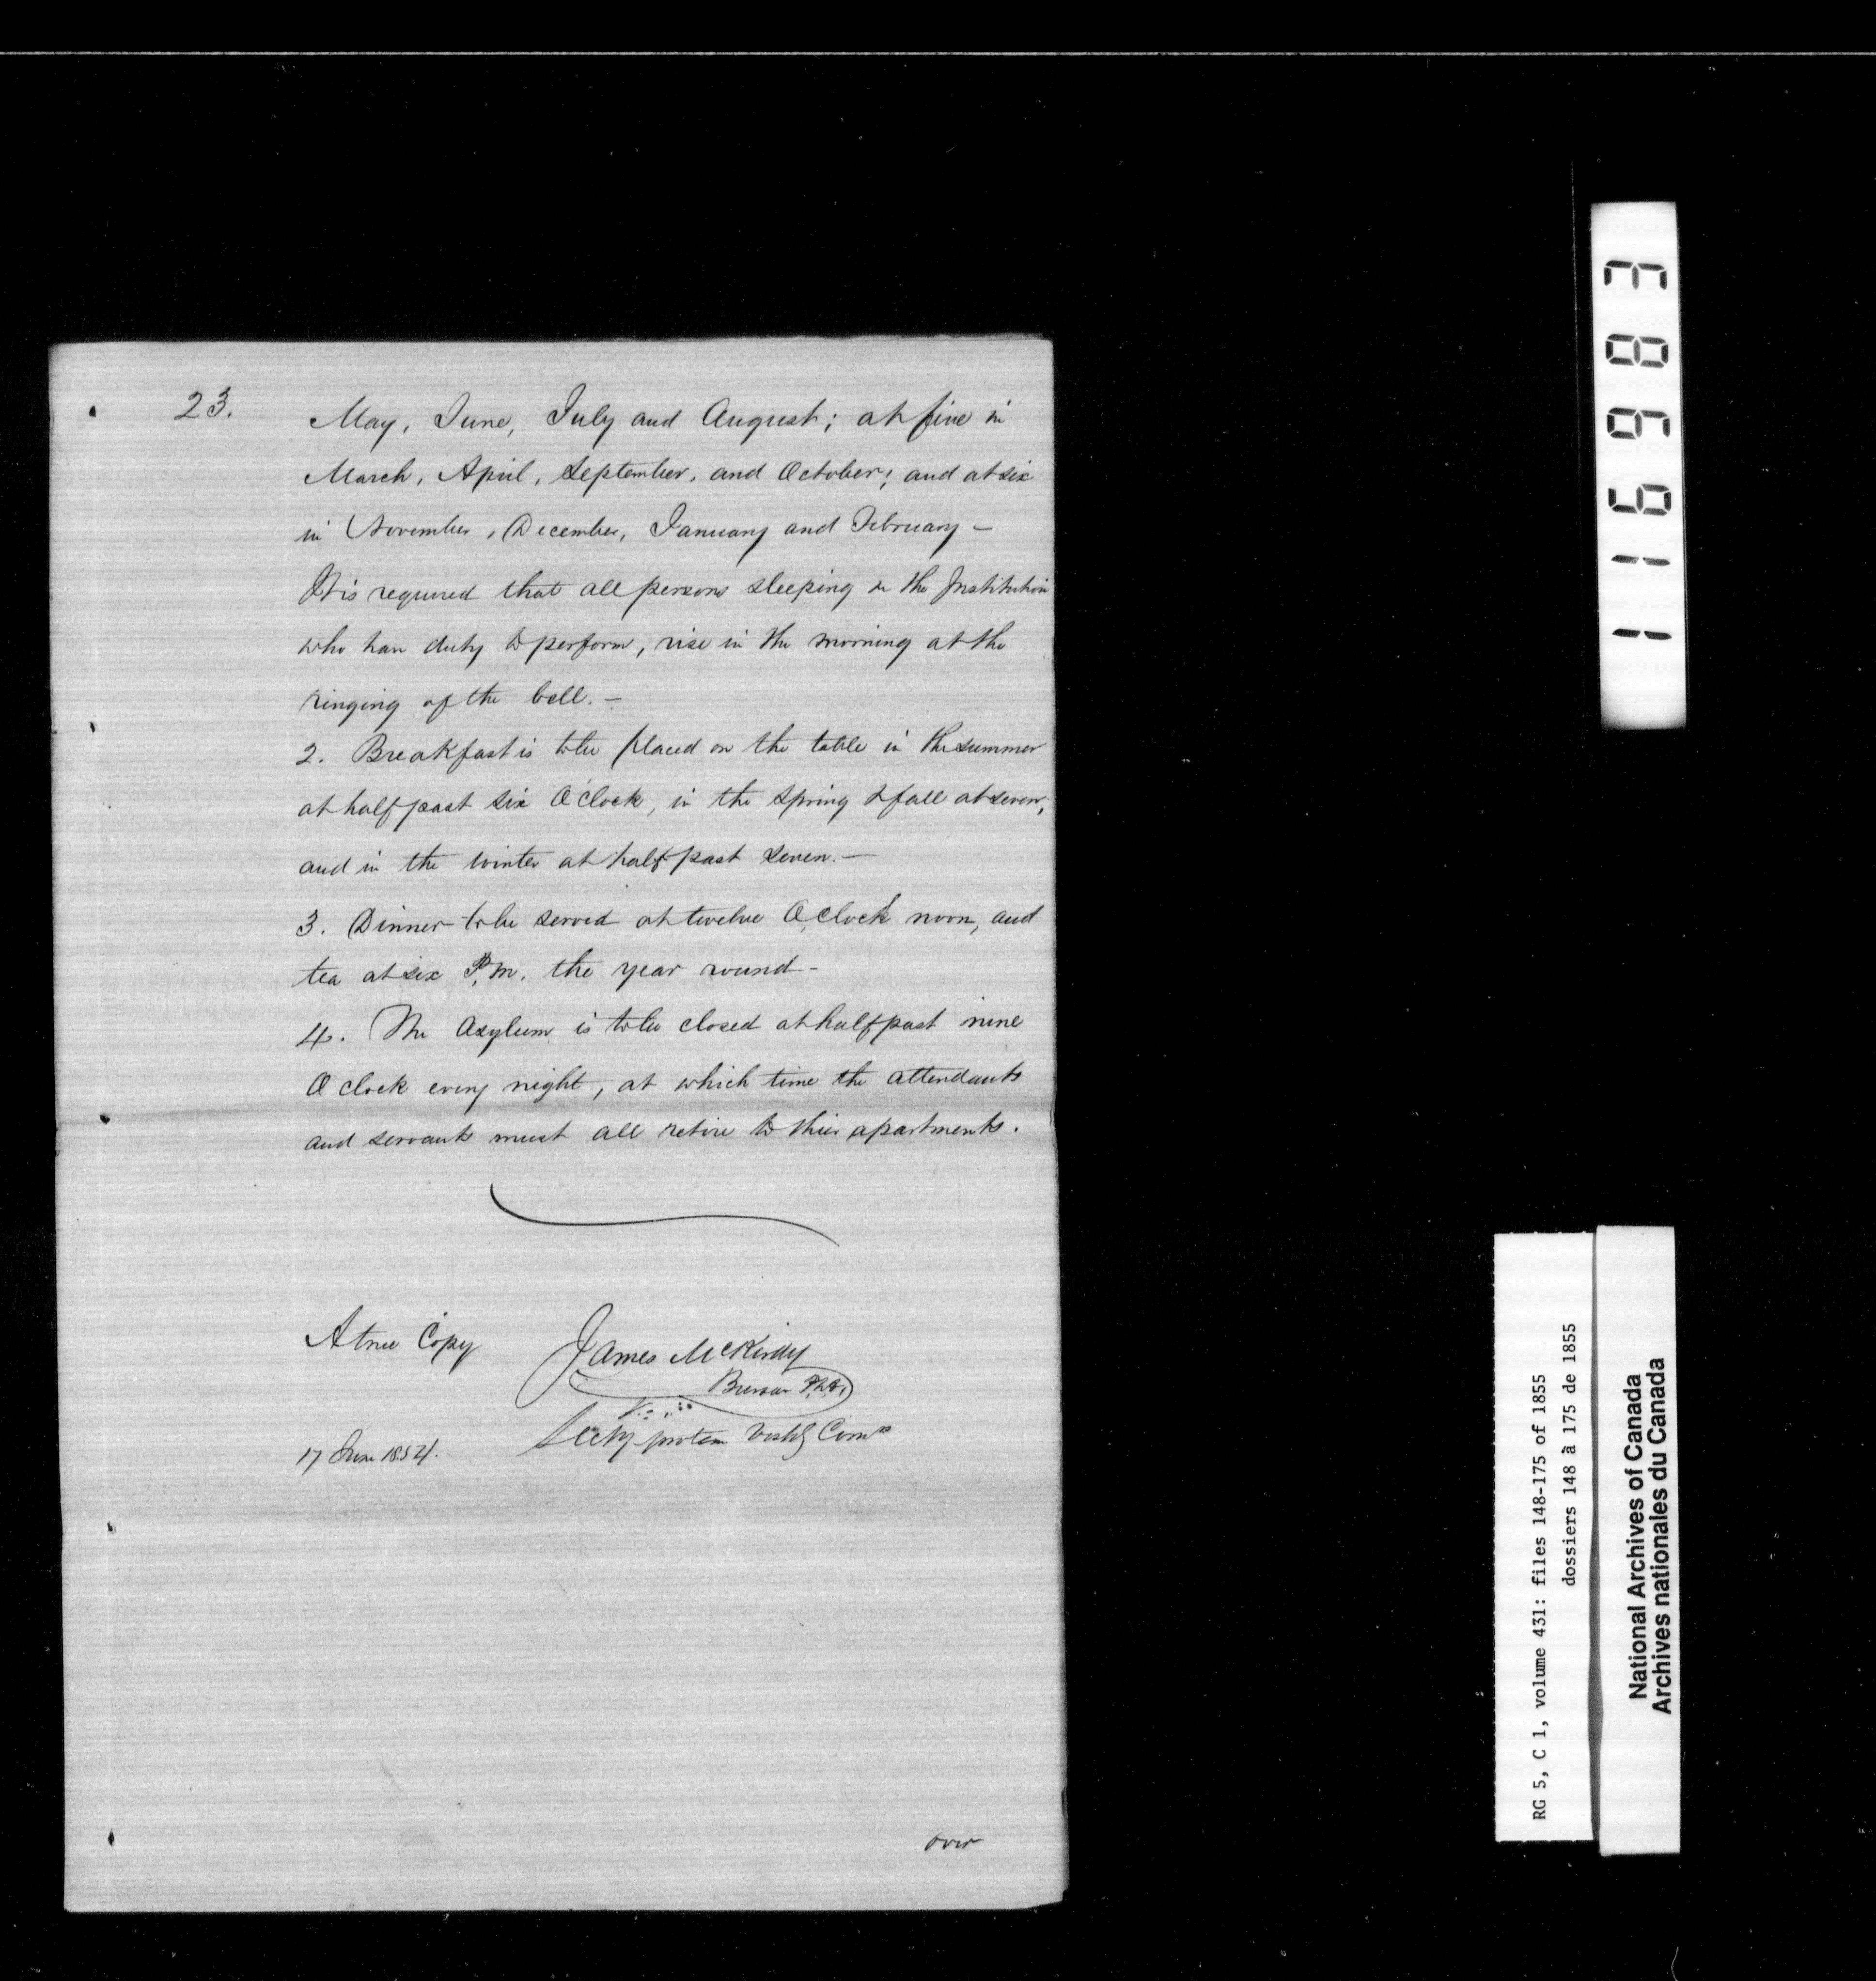 23.
May, June, July and August; at five in
March, April, September, and October; and at six
in November, December, January and February —
It is required that all persons sleeping in the Institution
who have duty to perform, rise in the morning at the
ringing of the bell. —
2. Breakfast is to be placed on the table in the summer
at half past six O'Clock, in the spring & fall at seven;
and in the winter at half past seven. —
3. Dinner to be served at twelve O,Clock noon, and
tea at six P.M. the year round -
4. The Asylum is to be closed at half past nine
O clock every night, at which time the attendants
and servants must all retire to their apartments.
A true Copy
James McKirdy
Bursar P.L.A.
Secty protem Visitg Coms
17 June 1854.
over
116983
RG 5, C 1, volume 431: files 148-175 of 1855
dossiers 148 à 175 de 1855
National Archives of Canada
Archives nationales du Canada